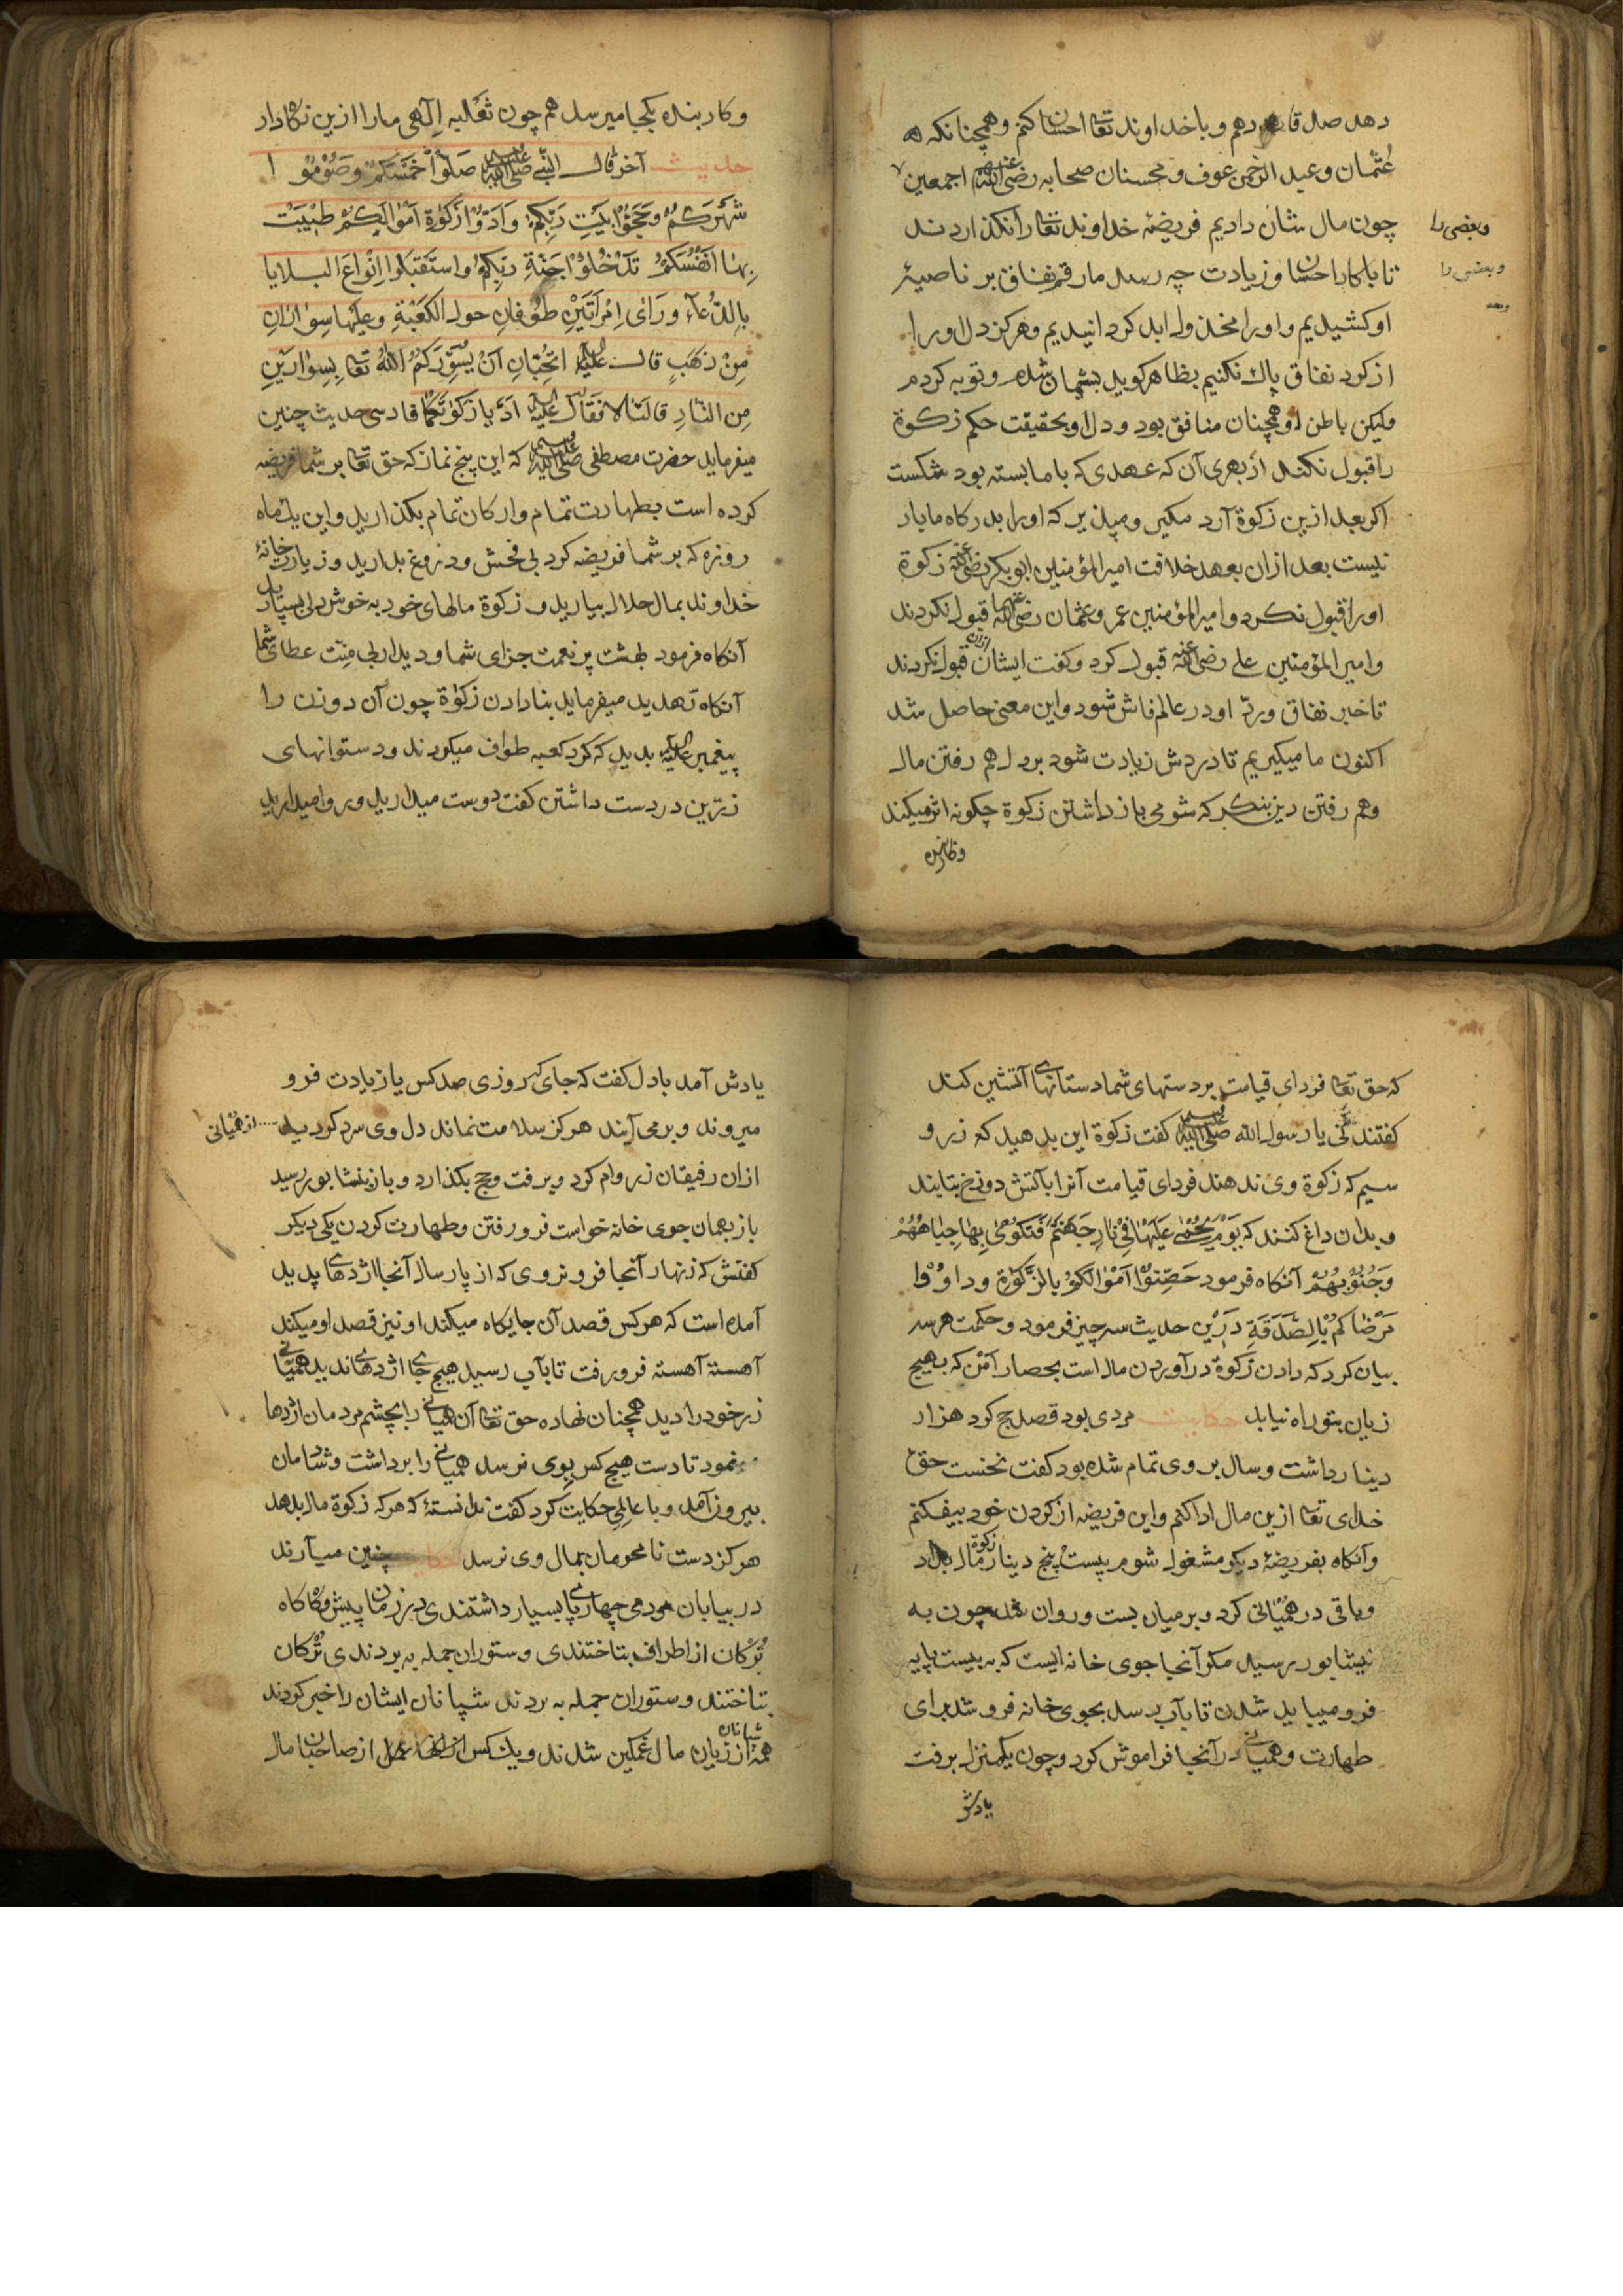 دهد صدقه دهم و با خداوند تعا احسان کنم و همچنانکه
عُثمان و عبد الرحمن عوف و محسنان صحابه رضی الله عنهم اجمعین
چون مال شان دادیم فریضهٔ خداوند تعا را نگذاردند
وبعضی را
تا باکار احسان و زیادت چه رسد ما رقم نفاق بر ناصیهٔ
وبعضی را
او کشیدیم و او را مخذول ابد کردانیدیم و هرکز دل او را
از کرد نفاق پاک نکنیم بظاهر کوید پشیمان شدم و توبه کردم
ولیکن باطن او همچنان منافق بود و دل او بحقیقت حکم زکوة
را قبول نکند از بهری آن که عهدی که با ما بسته بود شکست
اکر بعد ازین زکوة آرد مکیر و مپذیر که او را بدرکاه ما بار
نیست بعد ازان بعهد خلافت امیر المؤمنین ابوبکر رضی الله عنه زکوة
او را قبول نکرد و امیر المؤمنین عمر و عثمان رضی الله عنهما قبول نکردند
و امیر المؤمنین علی رضی الله عنه قبول کرد و کفت ایشان ازان قبول نکردند
تا خبر نفاق و ردّ او در عالم فاش شود و این معنی حاصل شد
اکنون ما میکیریم تا دردش زیادت شود بر دل هم رفتن مال
و هم رفتن دین بنکر که شومی باز داشتن زکوة چکونه اثر میکند
و کار بنده
و کار بنده بکجا میرسد هم چون ثعلبه اِلٓهی ما را ازین نکاه دار
حدیث آخر قال النّبی صلی الله علیه وسلم صَلّوا خَمْسَکُمْ وَصُوْمُوْا
شَهْرَکُمْ وَحَجُّوْا بَیْتِ رَبِّکُمْ وَاَدّوْا زَکٰوةَ اَمْوَالَکُمْ طَیّبَتْ
بِهٰا اَنْفُسَکُمْ تَدْخُلُوْا جَنّةِ رَبِّکُمْ واستَقبَلوا اَنْوَاعَ البلایا
بِالدُّعآءِ ورَاٰی اِمْرَاَتَیْنِ طُوفانِ حول الکَعْبَةِ وعلیْها سِوٰارَانِ
مِنْ ذَهَبٍ قال علیه السلام اَتُحِبّانِ اَنْ یُسَوِّرَکُمُ اللّٰهُ تعا بِسِوٰارَیْنِ
مِن النّارِ قالَتٰا لا فَقَال علیه السلام اَدّیا زَکوٰتَکُمٰا فارسی حدیث چنین
میفرماید حضرت مصطفی صلی الله علیه وسلم که این پنج نماز که حق تعا بر شما فریضه
کرده است بطهارت تمام و ارکان تمام بکذارید و این یک ماه
روزه که بر شما فریضه کرد بی فحش و دروغ بدارید و زیارت خانهٔ
خداوند بمال حلال بیارید و زکوة مالهای خود به خوش دلی بسپارید
آنکاه فرمود بهشت پر نعمت جزای شما و دیدار بی مِنّت عطای شما
آنکاه تهدید میفرماید بنا دادن زکوٰة چون آن دو زن را
پیغمبر علیه السلام بدید که کرد کعبه طواف میکردند و دستوانهای
زرّین در دست داشتن کفت دوست میدارید و روا میدارید
که حق تعا فردای قیامت بر دستهای شما دستانهای آتشین کند
کفتند نَی یا رسول الله صلی الله علیه وسلم کفت زکوة این بدهید که زر و
سیم که زکوة وی ندهند فردای قیامت آنرا بآتش دوزخ بتابند
و بدان داغ کنند که یَوْمَ یُحْمٰی عَلَیْهٰا فِیْ نٰارِ جَهَنَّمَ فَتُکْوٰی بِهٰا جِبٰاهُهُمْ
وَجُنُوْبُهُمْ آنکاه فرمود حَصِّنُوْا اَمْوٰالَکُمْ بِالزَّکٰوةِ و داوُوْا
مَرْضٰاکُمْ بِالصَّدَقَةِ دَرین حدیث سه چیز فرمود و حکمت هر سه
بیان کرد که دادن زکوة در آوردن مال است بحصار اَمْن که بهیچ
زیان بتو راه نیابد حکایت مردی بود قصد حج کرد هزار
دینار داشت و سال بر وی تمام شده بود کفت نخست حق
خدای تعا ازین مال ادا کنم و این فریضه از کردن خود بیفکنم
و آنکاه بفریضهٔ دیکر مشغول شوم بیست پنج دینار زکوة مال بداد
و باقی در همْیانی کرد و بر میان بست و روان شد چون به
نیشابور رسید مکر آنجا جوی خانه ایست که به بیست پایه
فرو میباید شدن تا بآب رسد بجوی خانه فرو شد برای
طهارت و همیانی در آنجا فراموش کرد و چون یکمنزل برفت
یادش
یادش آمد با دل کفت که جای که روزی صد کس یا زیادت فرو
میروند و بر می آیند هرکز سلامت نماند دل وی سرد کردید از همیانی
ازان رفیقان زر وام کرد و برفت و حج بکذارد و باز بنشابور رسید
باز بهمان جوی خانه خواست فرو رفتن و طهارت کردن یکی دیکر
کفتش که زنهار آنجا فرو نروی که از پار سال آنجا اژدهای پدید
آمده است که هر کس قصد آن جایکاه میکند او نیز قصد او میکند
آهسته آهسته فرو رفت تا بآب رسید هیچ جای اژدهای ندید همیانی
زر خود را دید همچنان نهاده حق تعا آن همیانی را بچشم مردمان اژدها
نمود تا دست هیچ کس بوی نرسد همیانی را برداشت و شادمان
بیرون آمد و با عالِمی حکایت کرد کفت ندانستهٔ که هر که زکوة مال بدهد
هرکز دست نا محرمان بمال وی نرسد حکایت چنین میآرند
در بیابان مردمی چهارپای بسیار داشتندی در زمان پیش وکاکاه
تُرکان از اطراف بتاختندی و ستوران جمله به بردندی تُرکان
بتاختند و ستوران جمله به بردند شپانان ایشان را خبر کردند
همه از زیان مال غمکین شدند و یک کس از صاحبان مال